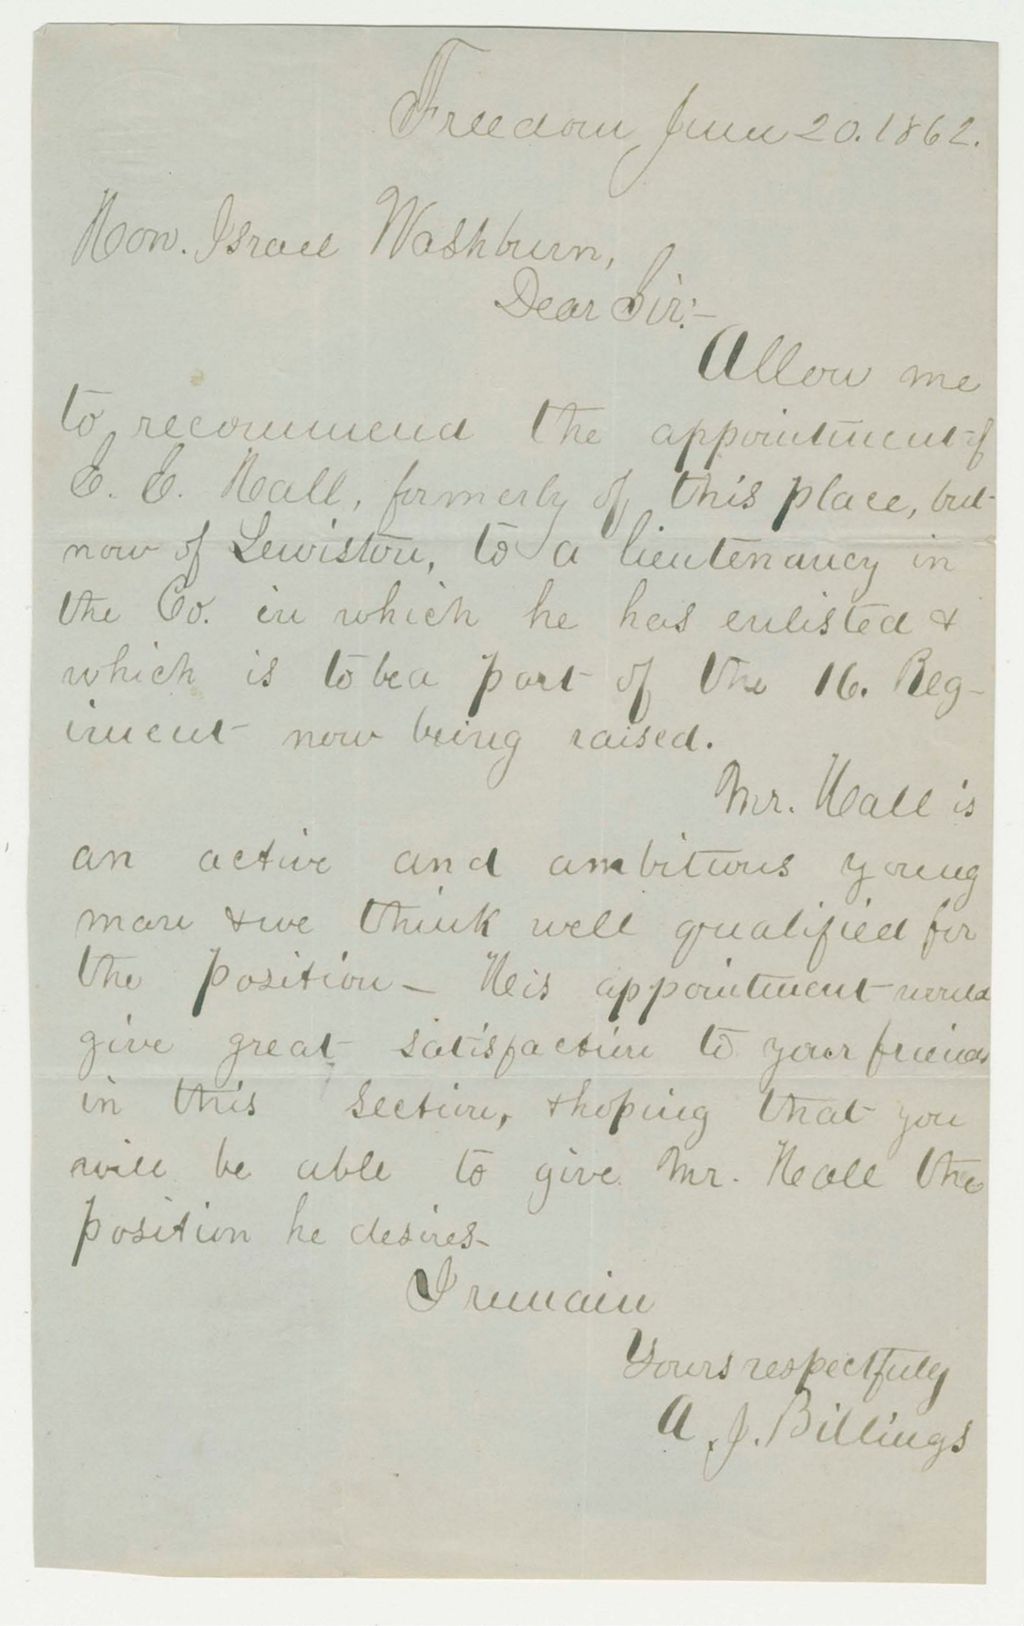 Freedom June 20. 1862.
Hon. Israel Washburn,
Dear Sir:-
Allow me
to recommend the appointment of
E. E. Hall, formerly of this place, but
now of Lewiston, to a lieutenancy in
the Co. in which he has enlisted &
which is to be a part of the 16. Reg-
iment now being raised.
Mr. Hall is
an active and ambitious young
man & we think well qualified for
the position - His appointment would
give great satisfaction to your friends
in this section, & hoping that you
will be able to give Mr. Hall the
position he desires-
I remain
Yours respectfully
A. J. Billings